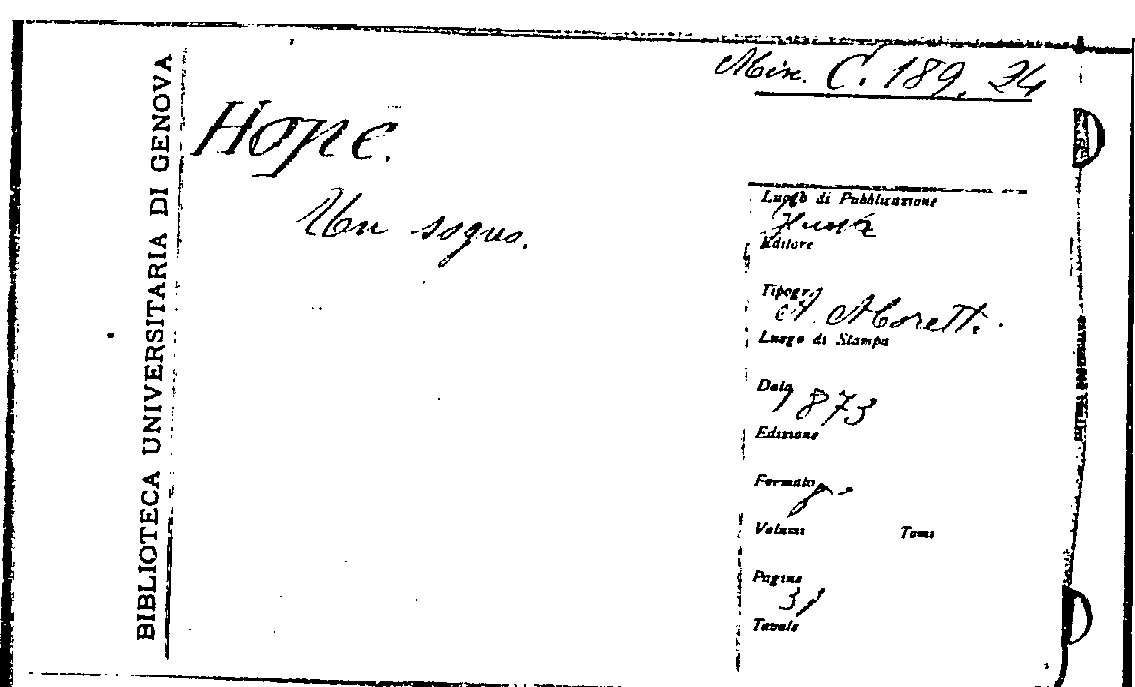 BIBLIOTECA UNIVERSITARIA DI GENOVA
Misc. C. 189. 24
Hope.
Un sogno.
Luogo di Pubblicazione
Editore
Tipogr.
A. Moretti.
Luogo di Stampa
Data
1873
Edizione
Formato
8°
Volumi Tomi
Pagine
31
Tavole